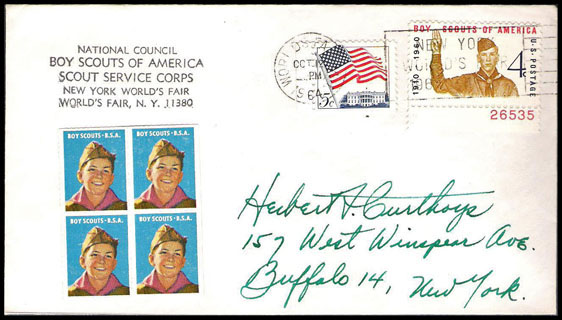 NATIONAL COUNCIL
BOY SCOUTS OF AMERICA
SCOUT SERVICE CORPS
NEW YORK WORLD'S FAIR
WORLD'S FAIR, N. Y. 11380
WORLD'S FA
OCT
PM
1964
5c
BOY SCOUTS OF AMERICA
1910-1960
U.S. POSTAGE
4c
NEW YORK
WORLD'S
26535
BOY SCOUTS · B.S.A.
BOY SCOUTS · B.S.A.
BOY SCOUTS · B.S.A.
BOY SCOUTS · B.S.A.
Herbert Curthoys
157 West Winspear Ave.
Buffalo 14, New York.